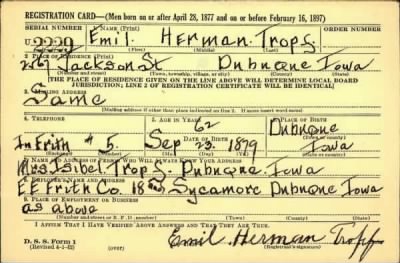 REGISTRATION CARD—(Men born on or after April 28, 1877 and on or before February 16, 1897)
SERIAL NUMBER 1. NAME (Print) ORDER NUMBER
Emil Herman Trops
(First) (Middle) (Last)
2. PLACE OF RESIDENCE (Print)
Jackson St Dubuque Iowa
(Number and street) (Town, township, village, or city) (County) (State)
[THE PLACE OF RESIDENCE GIVEN ON THE LINE ABOVE WILL DETERMINE LOCAL BOARD
JURISDICTION; LINE 2 OF REGISTRATION CERTIFICATE WILL BE IDENTICAL]
3. MAILING ADDRESS
Same
[Mailing address if other than place indicated on line 2. If same insert word same]
4. TELEPHONE 5. AGE IN YEARS 6. PLACE OF BIRTH
62 Dubuque
DATE OF BIRTH
Frith # 5 Sep 23. 1879 Iowa
(Exchange) (Number) (Mo.) (Day) (Yr.) (State or country)
7. NAME AND ADDRESS OF PERSON WHO WILL ALWAYS KNOW YOUR ADDRESS
Mrs Isibel Trops. Dubuque. Iowa
8. EMPLOYER'S NAME AND ADDRESS
EE Frith Co. Sycamore Dubuque Iowa
9. PLACE OF EMPLOYMENT OR BUSINESS
as above
(Number and street or R. F. D. number) (Town) (County) (State)
I AFFIRM THAT I HAVE VERIFIED ABOVE ANSWERS AND THAT THEY ARE TRUE.
D. S. S. Form 1
(Revised 4-1-42) (over)
Emil Herman Tropf
(Registrant's signature)